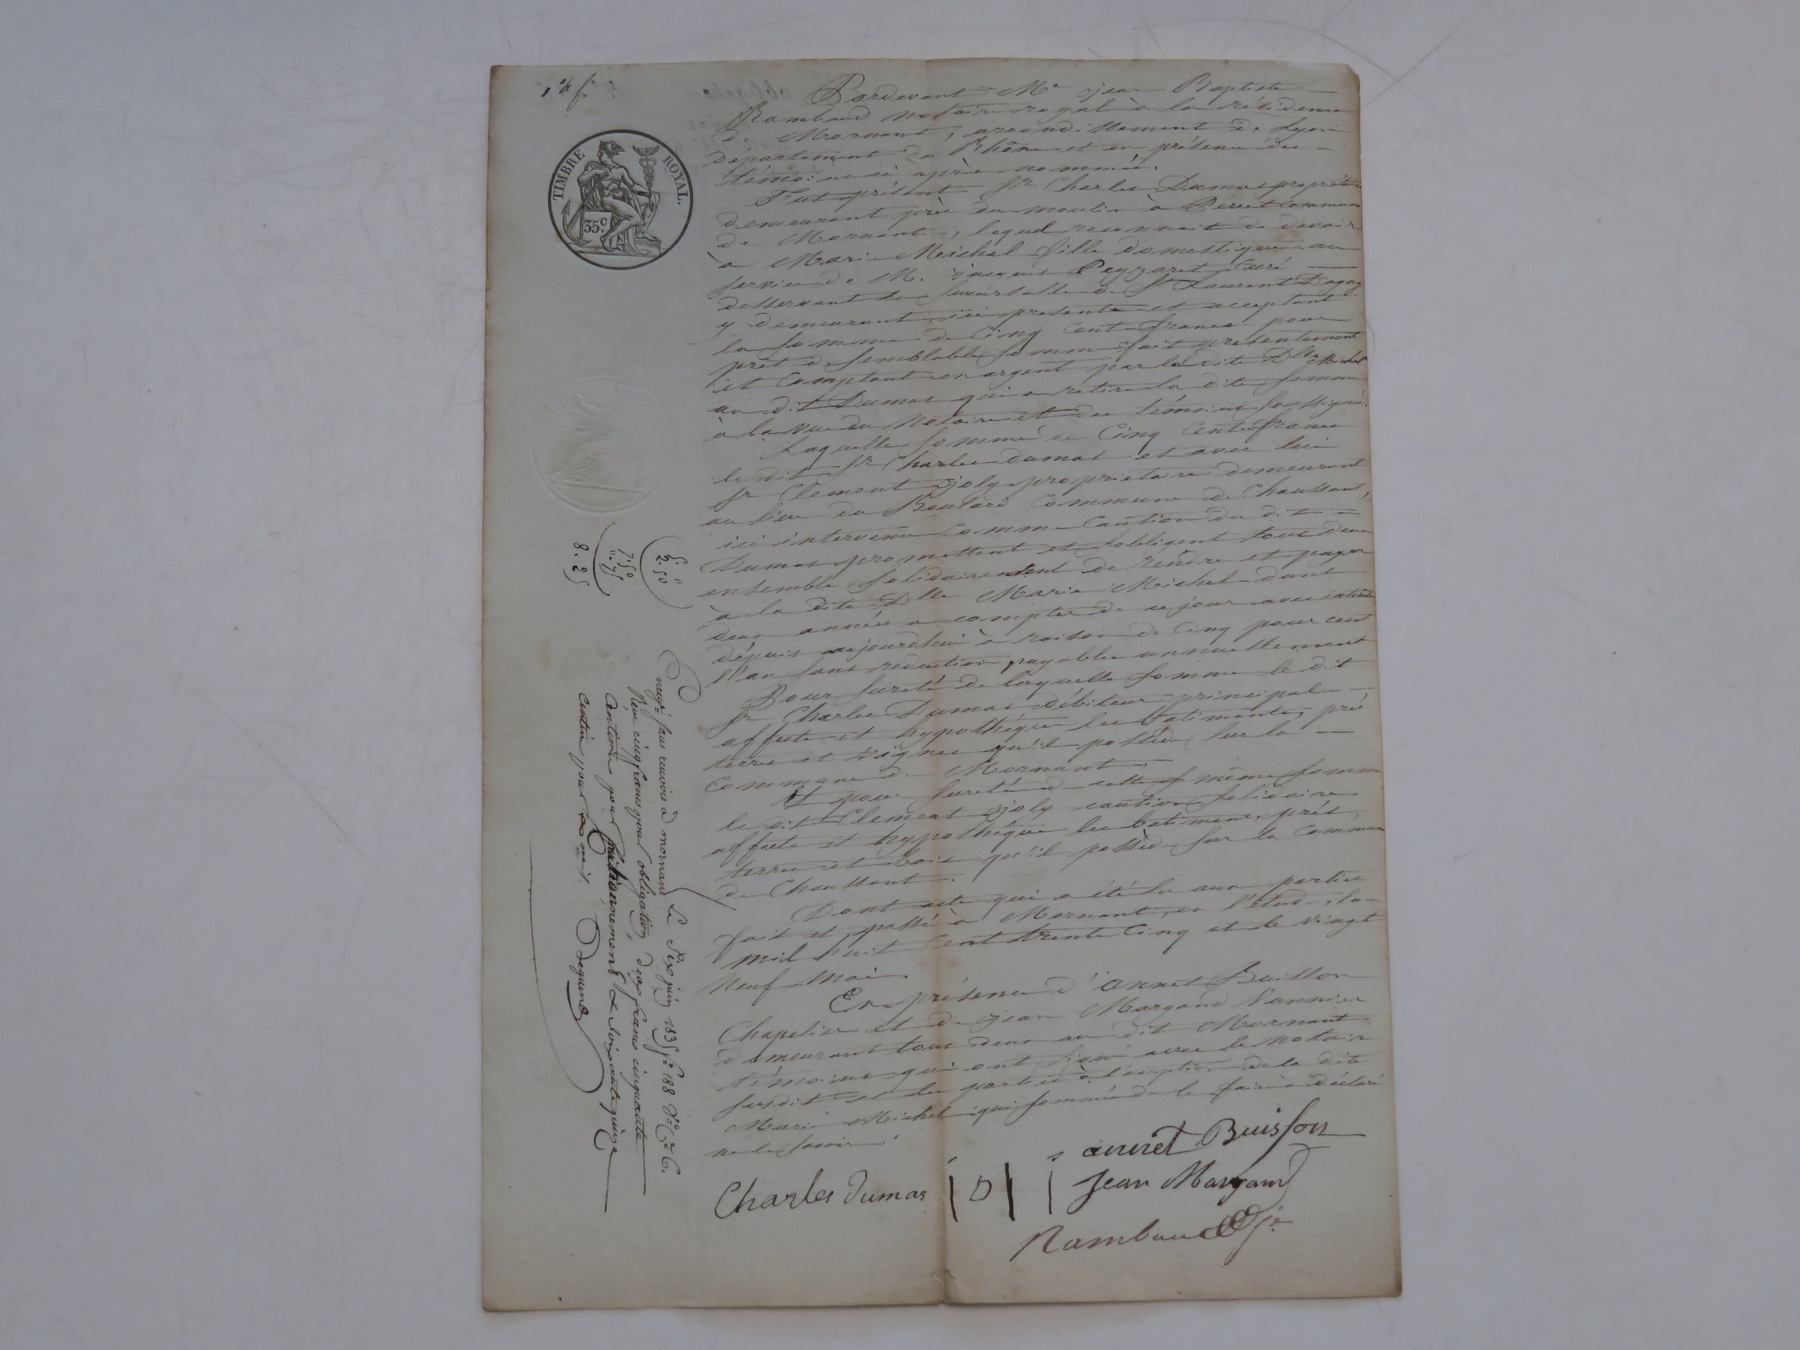 TIMBRE ROYAL.
35 c.
Pardevant Me jean Baptiste
Rambaud notaire royal à la résidence
de Mornant, arrondissement de Lyon
département du Rhône et en présence des
témoins ci après nommés.
Fut présent Sr Charles Dumas propriétaire
demeurant près du moulin à Perret commune
de Mornant, lequel reconnait de devoir
à Marie Michel fille domestique au
service de M. jacques Peyzaret Curé
desservant la succursalle de St Laurent Dagny
y demeurant, ici présente et acceptant
la somme de Cinq Cent francs pour
prêt de semblable somme fait présentement
et Comptant en argent par la dite Dlle Michel
au dit Dumas qui a retiré la dite somme
à la vue du Notaire et des témoins soussignés.
Laquelle somme de Cinq Cent francs
le dit Sr Charles dumas et avec lui
Sr Clement joly propriétaire demeurant
au lieu du Boulard Commune de Chaussant,
ici intervenu comme Caution du dit
Dumas promettent et s'obligent tous deux
ensemble solidairement de rendre et payer
à la dite Dlle Marie Michel dans
deux années a compter de ce jour avec intérêt
dépuis aujourdhui à raison de Cinq pour cent
l'an sans réduction, payables annuellement
Pour sureté de laquelle somme le dit
Sr Charles Dumas débiteur principal
affecte et hypothèque les batiments, pré
terres et vignes qu'il possède sur la
Commune de Mornant.
Et pour sureté de cette même somme
le dit Clement joly caution solidaire
affecte et hypothèque les batiments, prés,
terres et bois qu'il possède sur la Commune
de Chaussant.
Dont acte qui a été lu aux parties
fait et passé à Mornant, en l'étude, l'an
mil huit Cent trente Cinq et le vingt
neuf Mai.
En présence d'annet Buisson
Chapelier et de jean Margand Vannier
demeurant tous deux au dit Mornant
témoins qui ont signé avec le notaire
susdit et les parties à l'exception de la dite
Marie Michel qui sommée de le faire a déclaré
ne le savoir.
annet Buisson
Charles Dumas
D
Jean Margand
Rambaud
5 "
2.50
7.50
".75
8.25
sans renvois à mornant Le Six juin 1835 fo 188 Vo Ce 6.
Reçu cinq francs pour obligation, deux francs cinquante
Centimes pour Cautionnement et Soixante quinze
Centimes pour